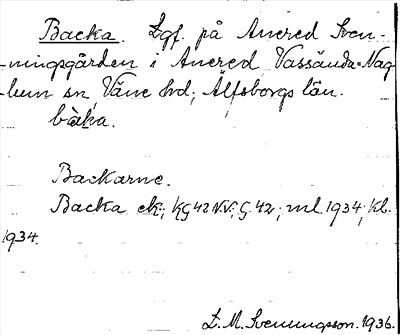 Backa. Lgf. på Anered Sven-
ningsgården i Anered Vassända-Nag-
lum sn Väne hd; Älfsborgs län.
bàka.
Backarne.
Backa ek; KG 42 N.V; G. 42; ml. 1934; kl.
1934.
L. M. Svenungsson. 1936.